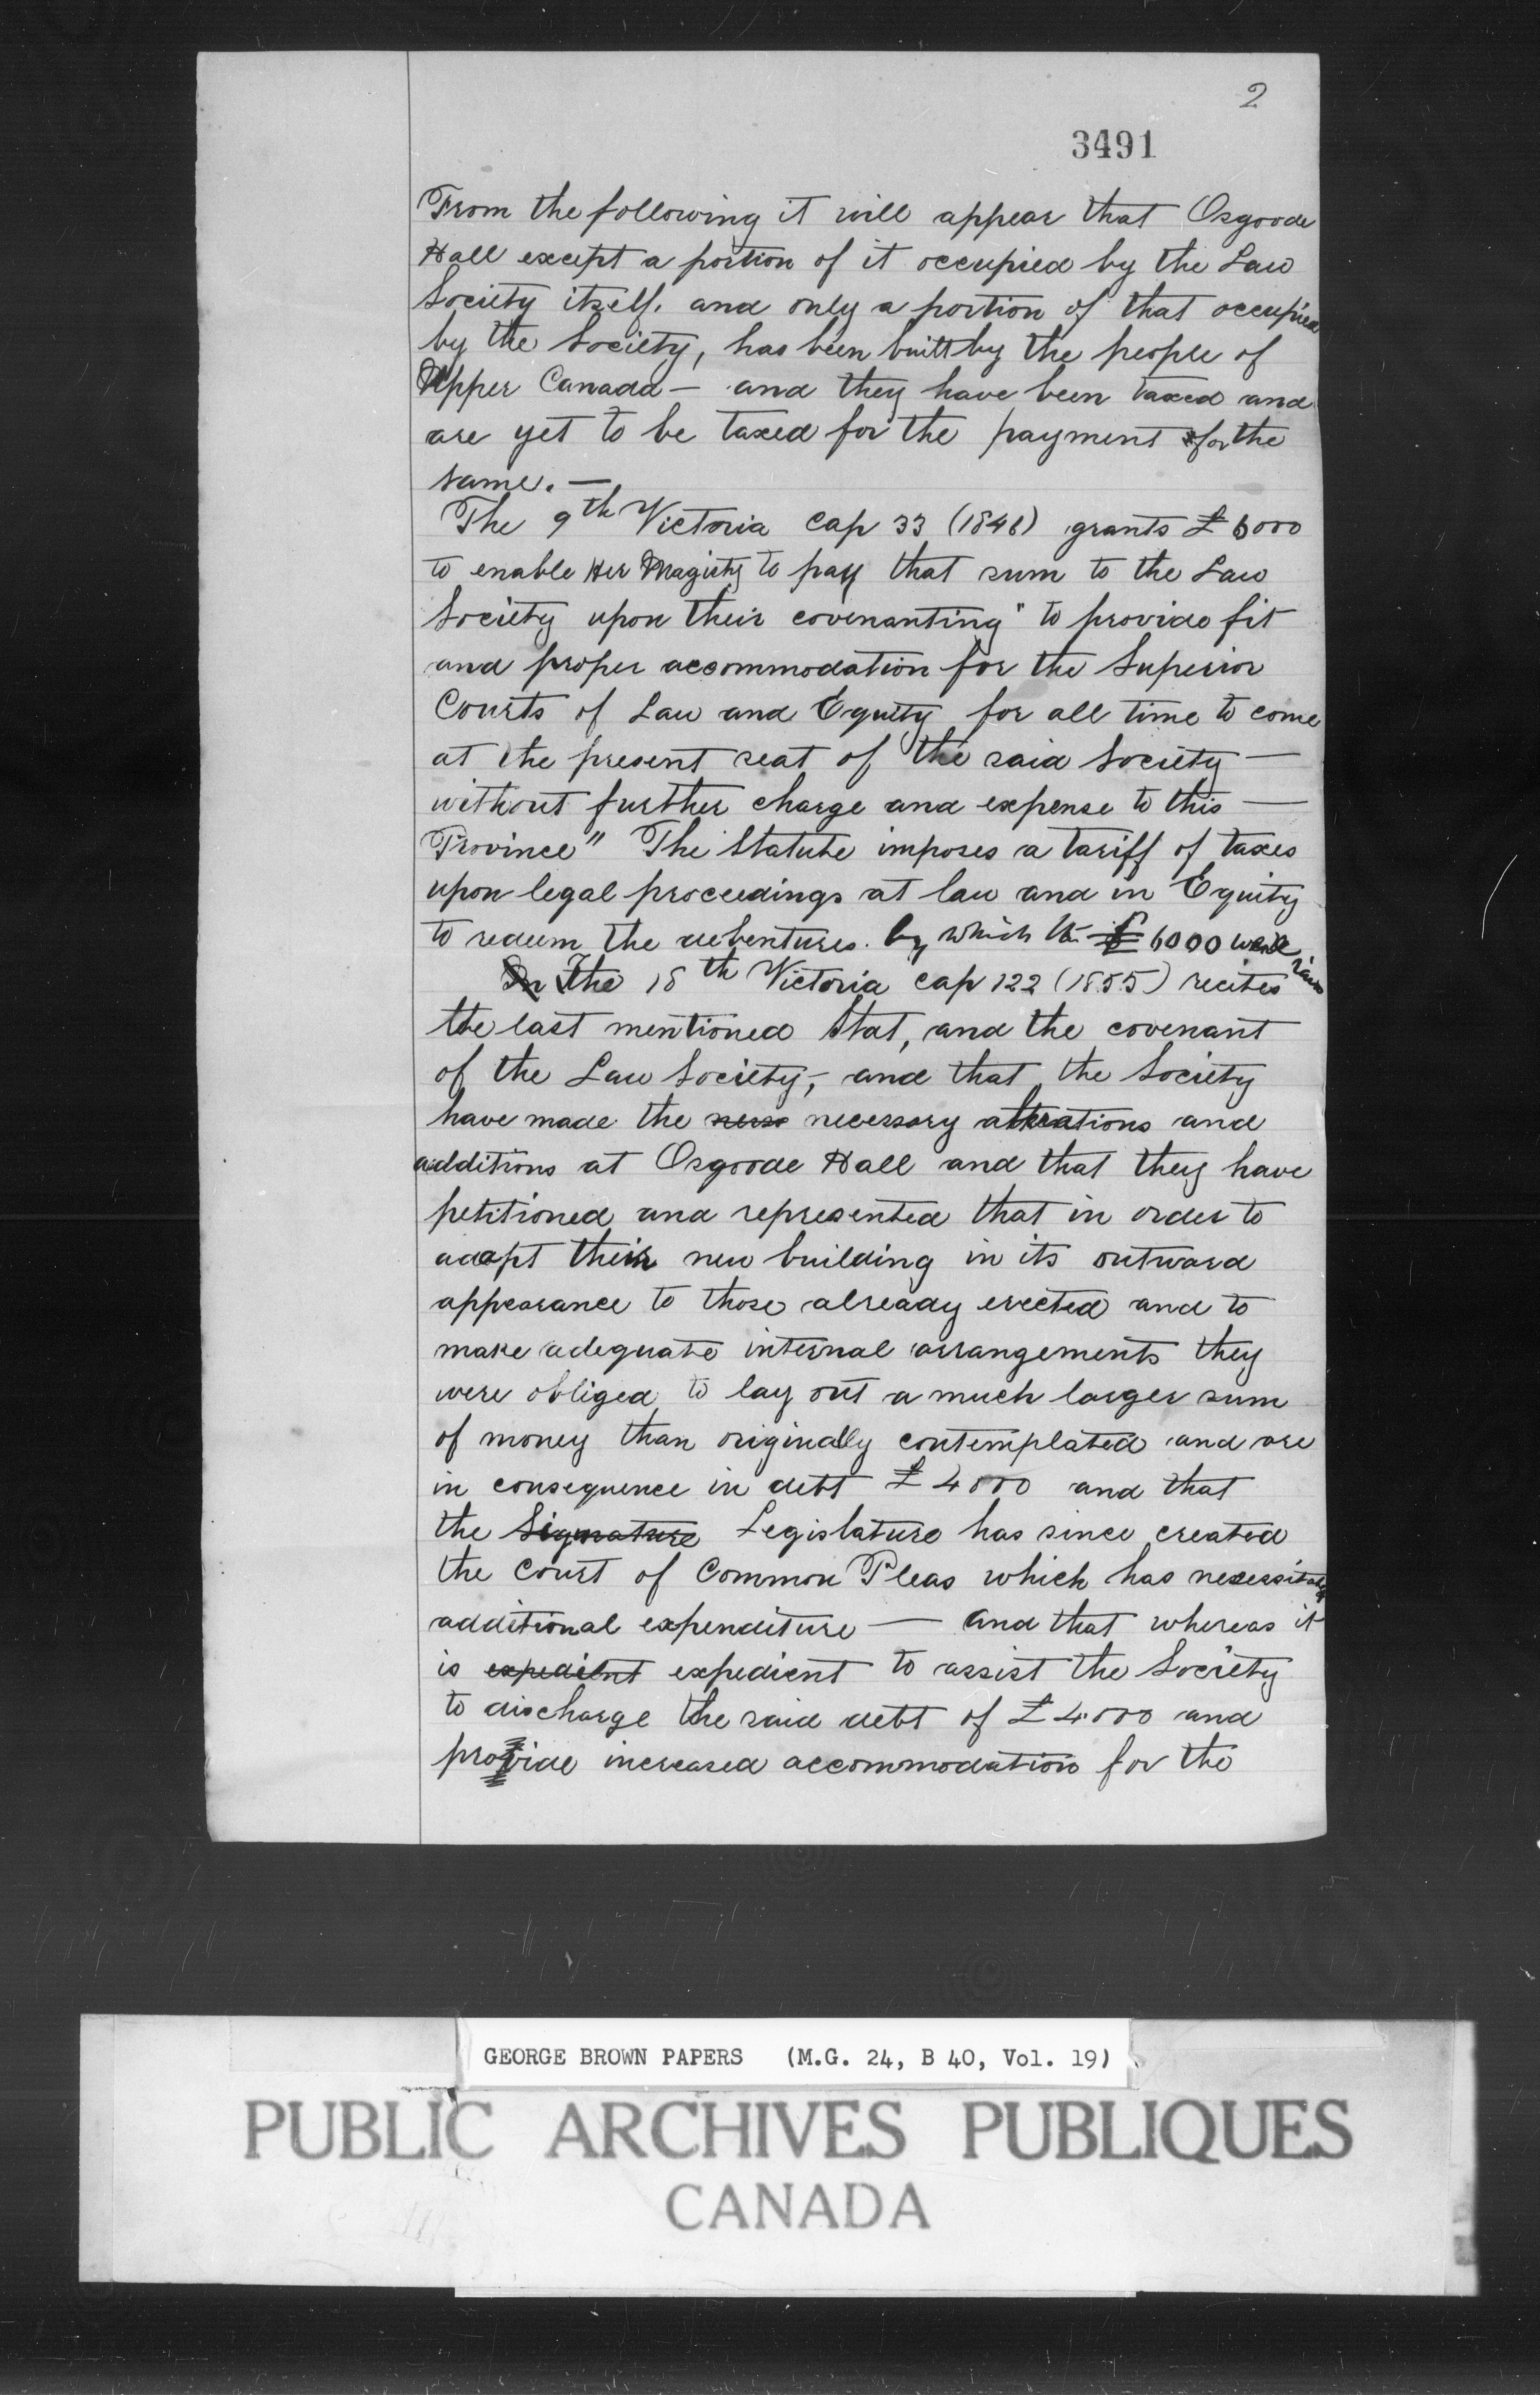 2
3491
From the following it will appear that Osgoode
Hall except a portion of it occupied by the Law
Society itself, and only a portion of that occupied
by the Society, has been built by the people of
Upper Canada — and they have been taxed and
are yet to be taxed for the payment for the
same. —
The 9th Victoria cap 33 (1846) grants £6000
to enable Her Magisty to pay that sum to the Law
Society upon their covenanting "to provide fit
and proper accommodation for the Superior
Courts of Law and Equity for all time to come
at the present seat of the said Society —
without further charge and expense to this —
Province" The Statute imposes a tariff of taxes
upon legal proceedings at law and in Equity
to redeem the debentures by which the £6000 were
In The 18th Victoria cap 122 (1855) recites
the last mentioned Stat, and the covenant
of the Law Society, — and that the Society
have made the necessary alterations and
additions at Osgoode Hall and that they have
petitioned and represented that in order to
adapt their new building in its outward
appearance to those already erected and to
make adequate internal arrangements they
were obliged to lay out a much larger sum
of money than originally contemplated and are
in consequence in debt £4000 and that
the Signature Legislature has since created
the Court of Common Pleas which has necessitated
additional expenditure — and that whereas it
is expedient expedient to assist the Society
to discharge the said debt of £4000 and
provide increased accommodation for the
GEORGE BROWN PAPERS (M.G. 24, B 40, Vol. 19)
PUBLIC ARCHIVES PUBLIQUES
CANADA